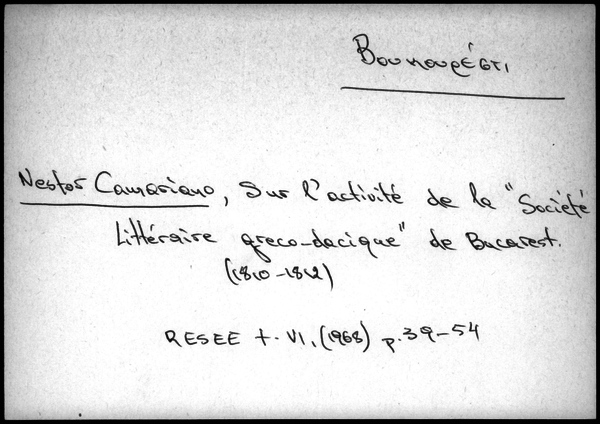 Βουκουρέστι
Nestor Camariano, Sur l'activité de la "Société
Littéraire greco-dacique" de Bucarest.
(1810-1812)
RESEE t. VI. (1968) p. 39-54